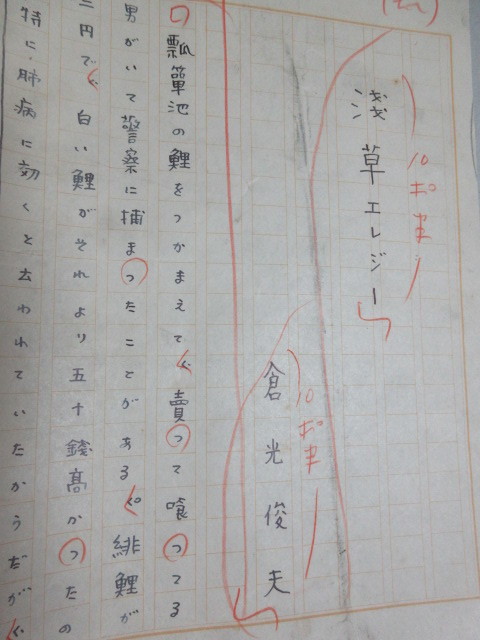 淺草エレジー
倉光俊夫
瓢簞池の鯉をつかまえて、賣って喰ってる
男がいて警察に捕まったことがある。緋鯉が
円で、白い鯉がそれより五十錢高かったの
特に肺病に効くと云われていたからだが、